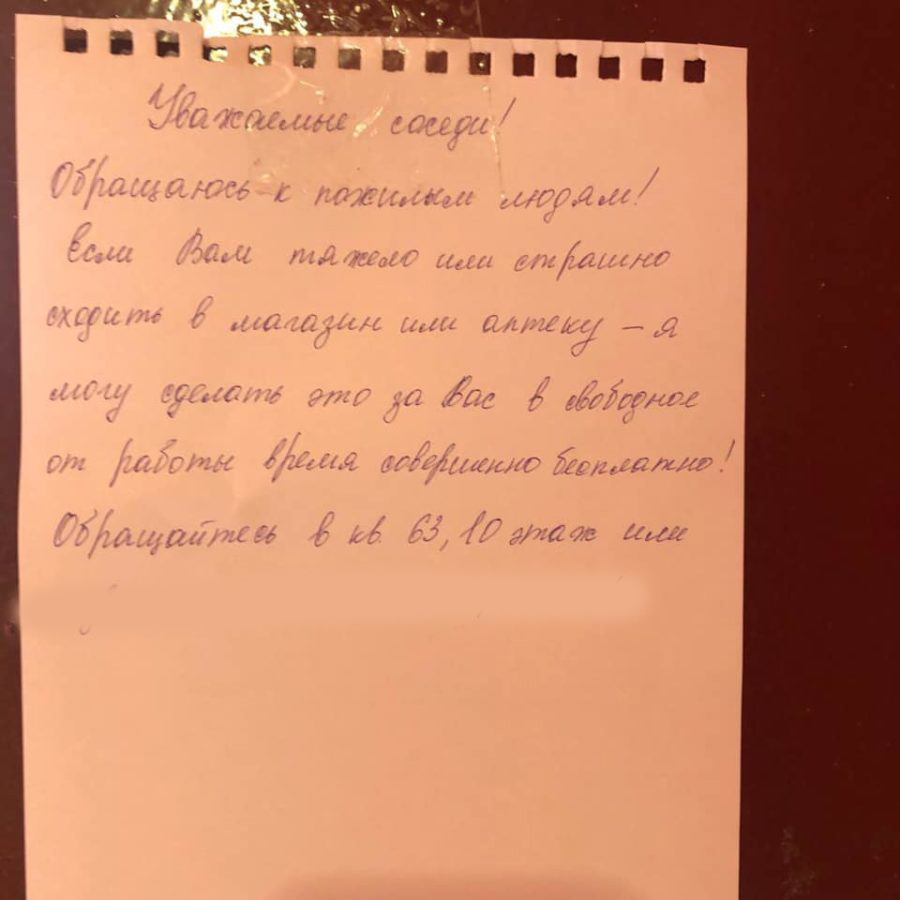 Уважаемые соседи!
Обращаюсь к пожилым людям!
Если Вам тяжело или страшно
сходить в магазин или аптеку – я
могу сделать это за Вас в свободное
от работы время совершенно бесплатно!
Обращайтесь в кв. 63, 10 этаж или